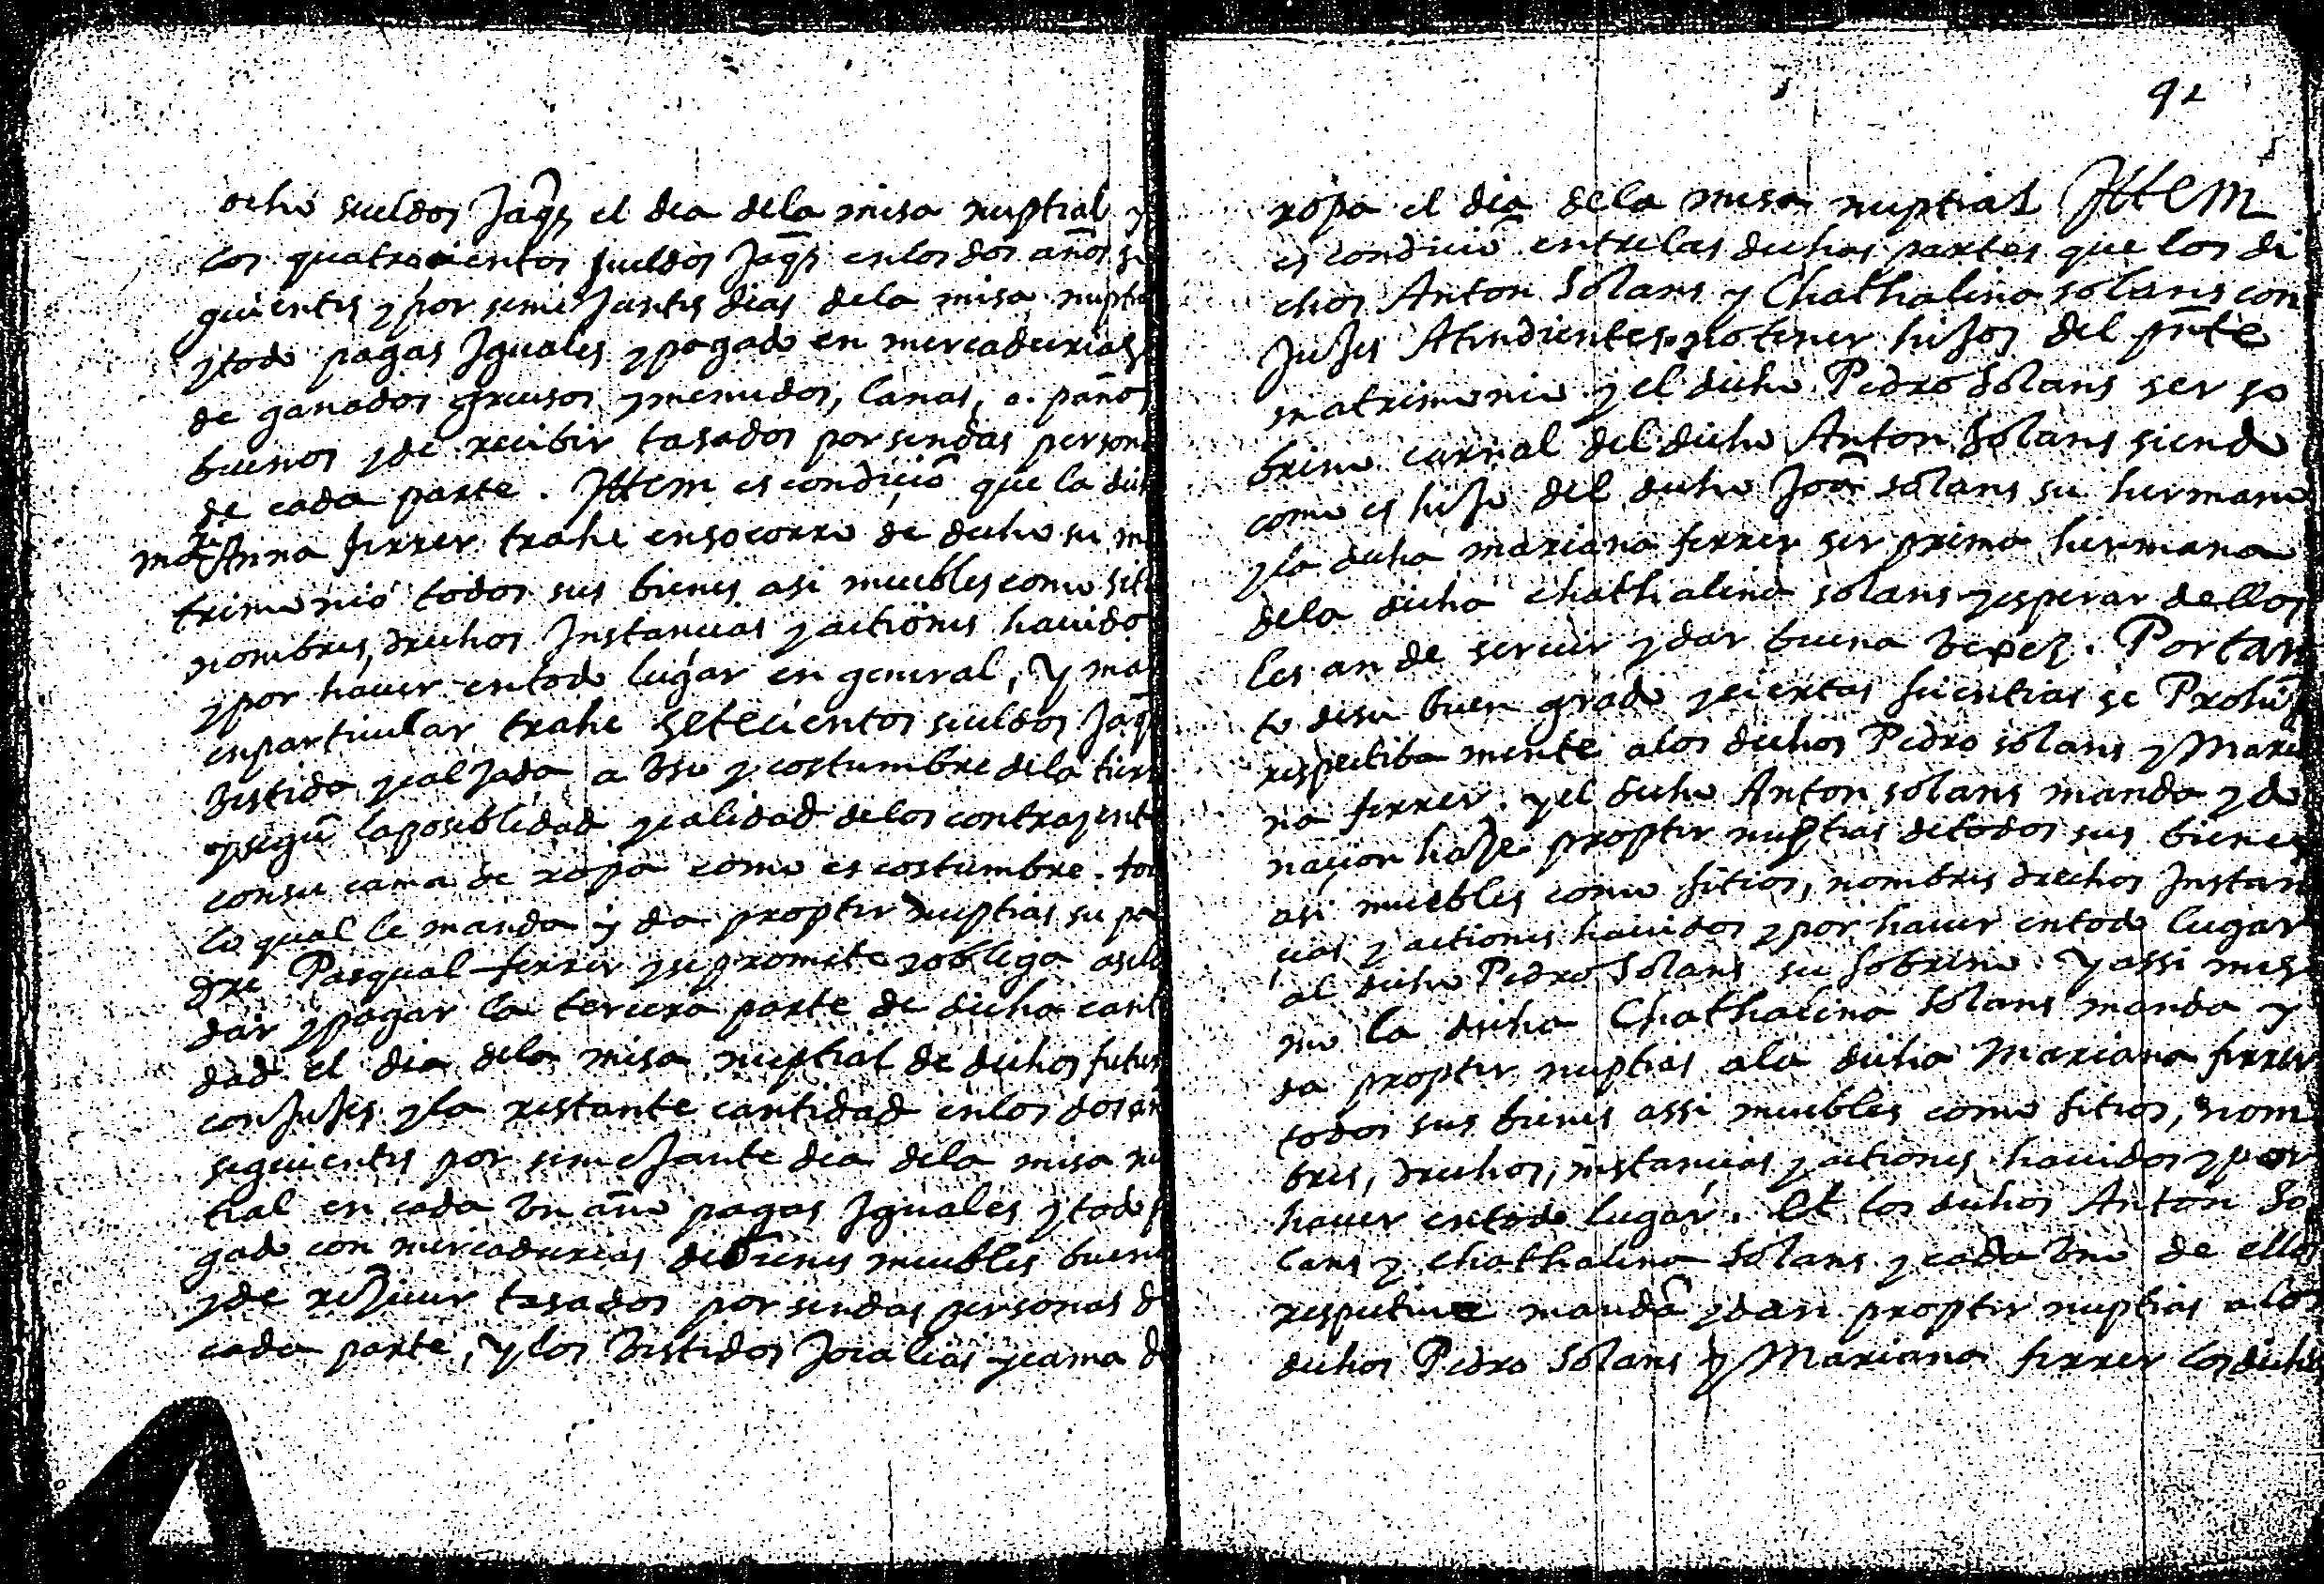 ocho sueldos Jaqs el dia dela misa nuptial y
los quatrocientos sueldos Jaqs enlos dos años si
guientes y por semejantes dias dela misa nuptia
ytodo pagas Iguales y pagado en mercadurias
de ganados gruesos ymenudos, lanas, o paños
buenos yde recibir tasados por sendas persona
de cada parte. Ittem es condiçiō que la dich
mariAnna ferrer trahe ensocorro de dicho su ma
trimonio todos sus bienes asi muebles como siti
nombres, drechos Instancias y actiones hauido
ypor hauer entodo lugar en general, y mas
enparticular trahe setecientos sueldos Jaqs
Vestida ycalzada a Vso y costumbre dela tierr
ysegū laposiblidad ycalidad delos contrayente
consu cama de ropa como es costumbre. tod
lo qual le manda y da propter nuptias su pa
dre Pasqual ferrer yse promete yobliga aselo
dar ypagar la tercera parte de dicha canti
dad el dia dela misa nuptial de dichos futur
conjujes yla restante cantidad enlos dos añ
seguientes por semejante dia dela misa nu
tial en cada Vn año pagas Iguales ytodo p
gado con mercadurias debienes muebles bueno
yde reziuir tasados por sendas personas d
cada parte, y los Vestidos Jocalias ycama d
92
ropa el dia dela misa nuptial Ittem
es condiciō entrelas dichas partes que los di
chos Anton Solans y Chathalina solans con
Jujes Atendientes no tener hijos del pnte
matrimonio y el dicho Pedro Solans ser so
brino carnal del dicho Anton Solans siendo
como es hijo del dicho Joā solans su hermano
yla dicha mariana ferrer ser prima hermana
dela dicha chathalina solans yesperar dellos
les an de seruir ydar buena Vejez. Portan
to desu buen grado yciertas scientias se Prohij
respectiba mente alos dichos Pedro solans y Maria
na ferrer. yel dicho Anton solans manda y do
naçion haze propter nuptias detodos sus bienes
asi muebles como sitios, nombres drechos Instan
cias y actiones hauidos ypor hauer entodo lugar
al dicho Pedro Solans su sobrino. Y assi mis
mo la dicha Chathalina Solans manda y
da propter nuptias ala dicha Mariana ferrer
todos sus bienes assi muebles como sitios, nom
bres, drechos, instancias y actiones hauidos ypor
hauer entodo lugar. Et los dichos Anton So
lans y chathalina Solans y cada Vno de ellos
respectiue mandā ydan propter nuptias alo
dichos Pedro Solans y Mariana ferrer los dicho